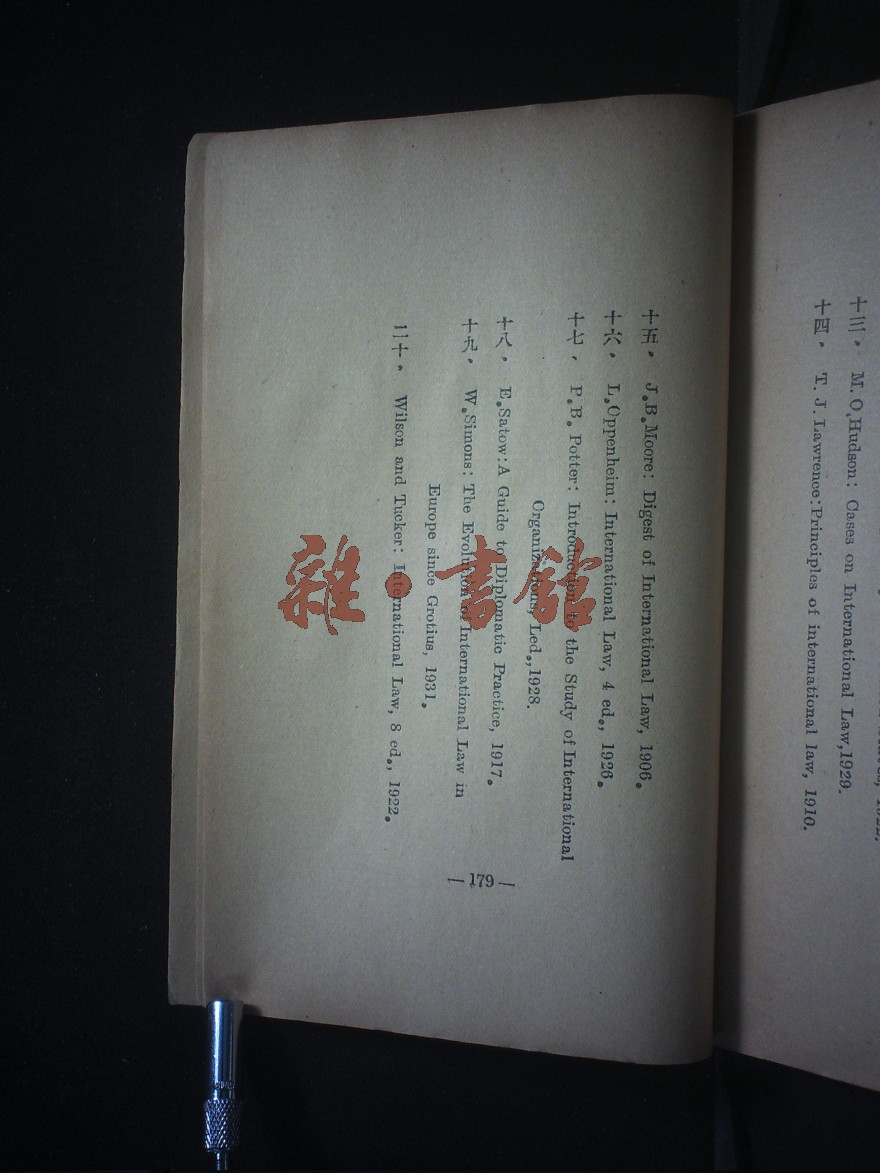 十三. M.O.Hudson: Cases on International Law,1929.
十四. T. J. Lawrence:Principles of international law, 1910.
十五. J.B.Moore: Digest of International Law, 1906.
十六. L.Oppenheim: International Law, 4 ed., 1926.
十七. P.B. Potter: Introduction to the Study of International
Organizations, Led.,1928.
十八. E.Satow:A Guide to Diplomatic Practice, 1917.
十九. W.Simons: The Evolution of International Law in
Europe since Grotius, 1931.
二十. Wilson and Tucker: International Law, 8 ed., 1922.
—179—
雜·書館